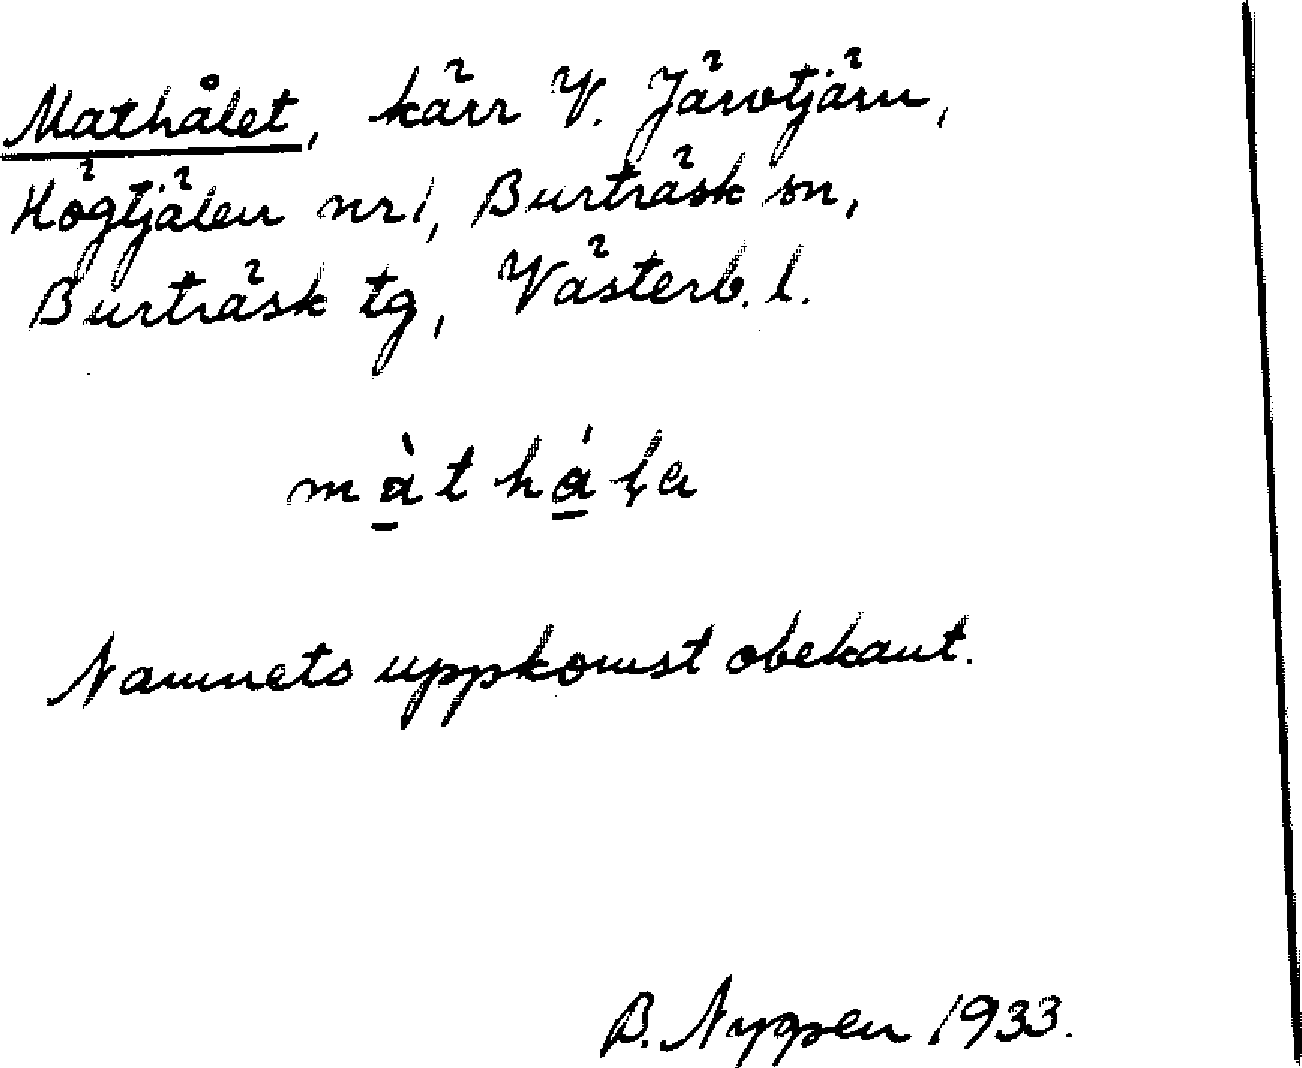 Mathålet, kärr V. Järvtjärn,
Högtjälen nr 1, Burträsk sn,
Burträsk tg, Västerb. l.
màthála
Namnets uppkomst obekant.
B. Nygren 1933.